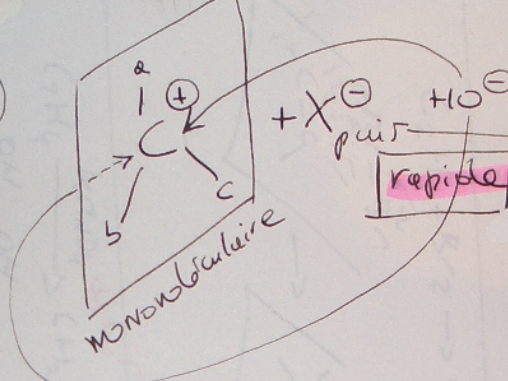 a
C ⊕
b
c
+ X ⊖
HO ⊖
puis
rapide
monomoléculaire